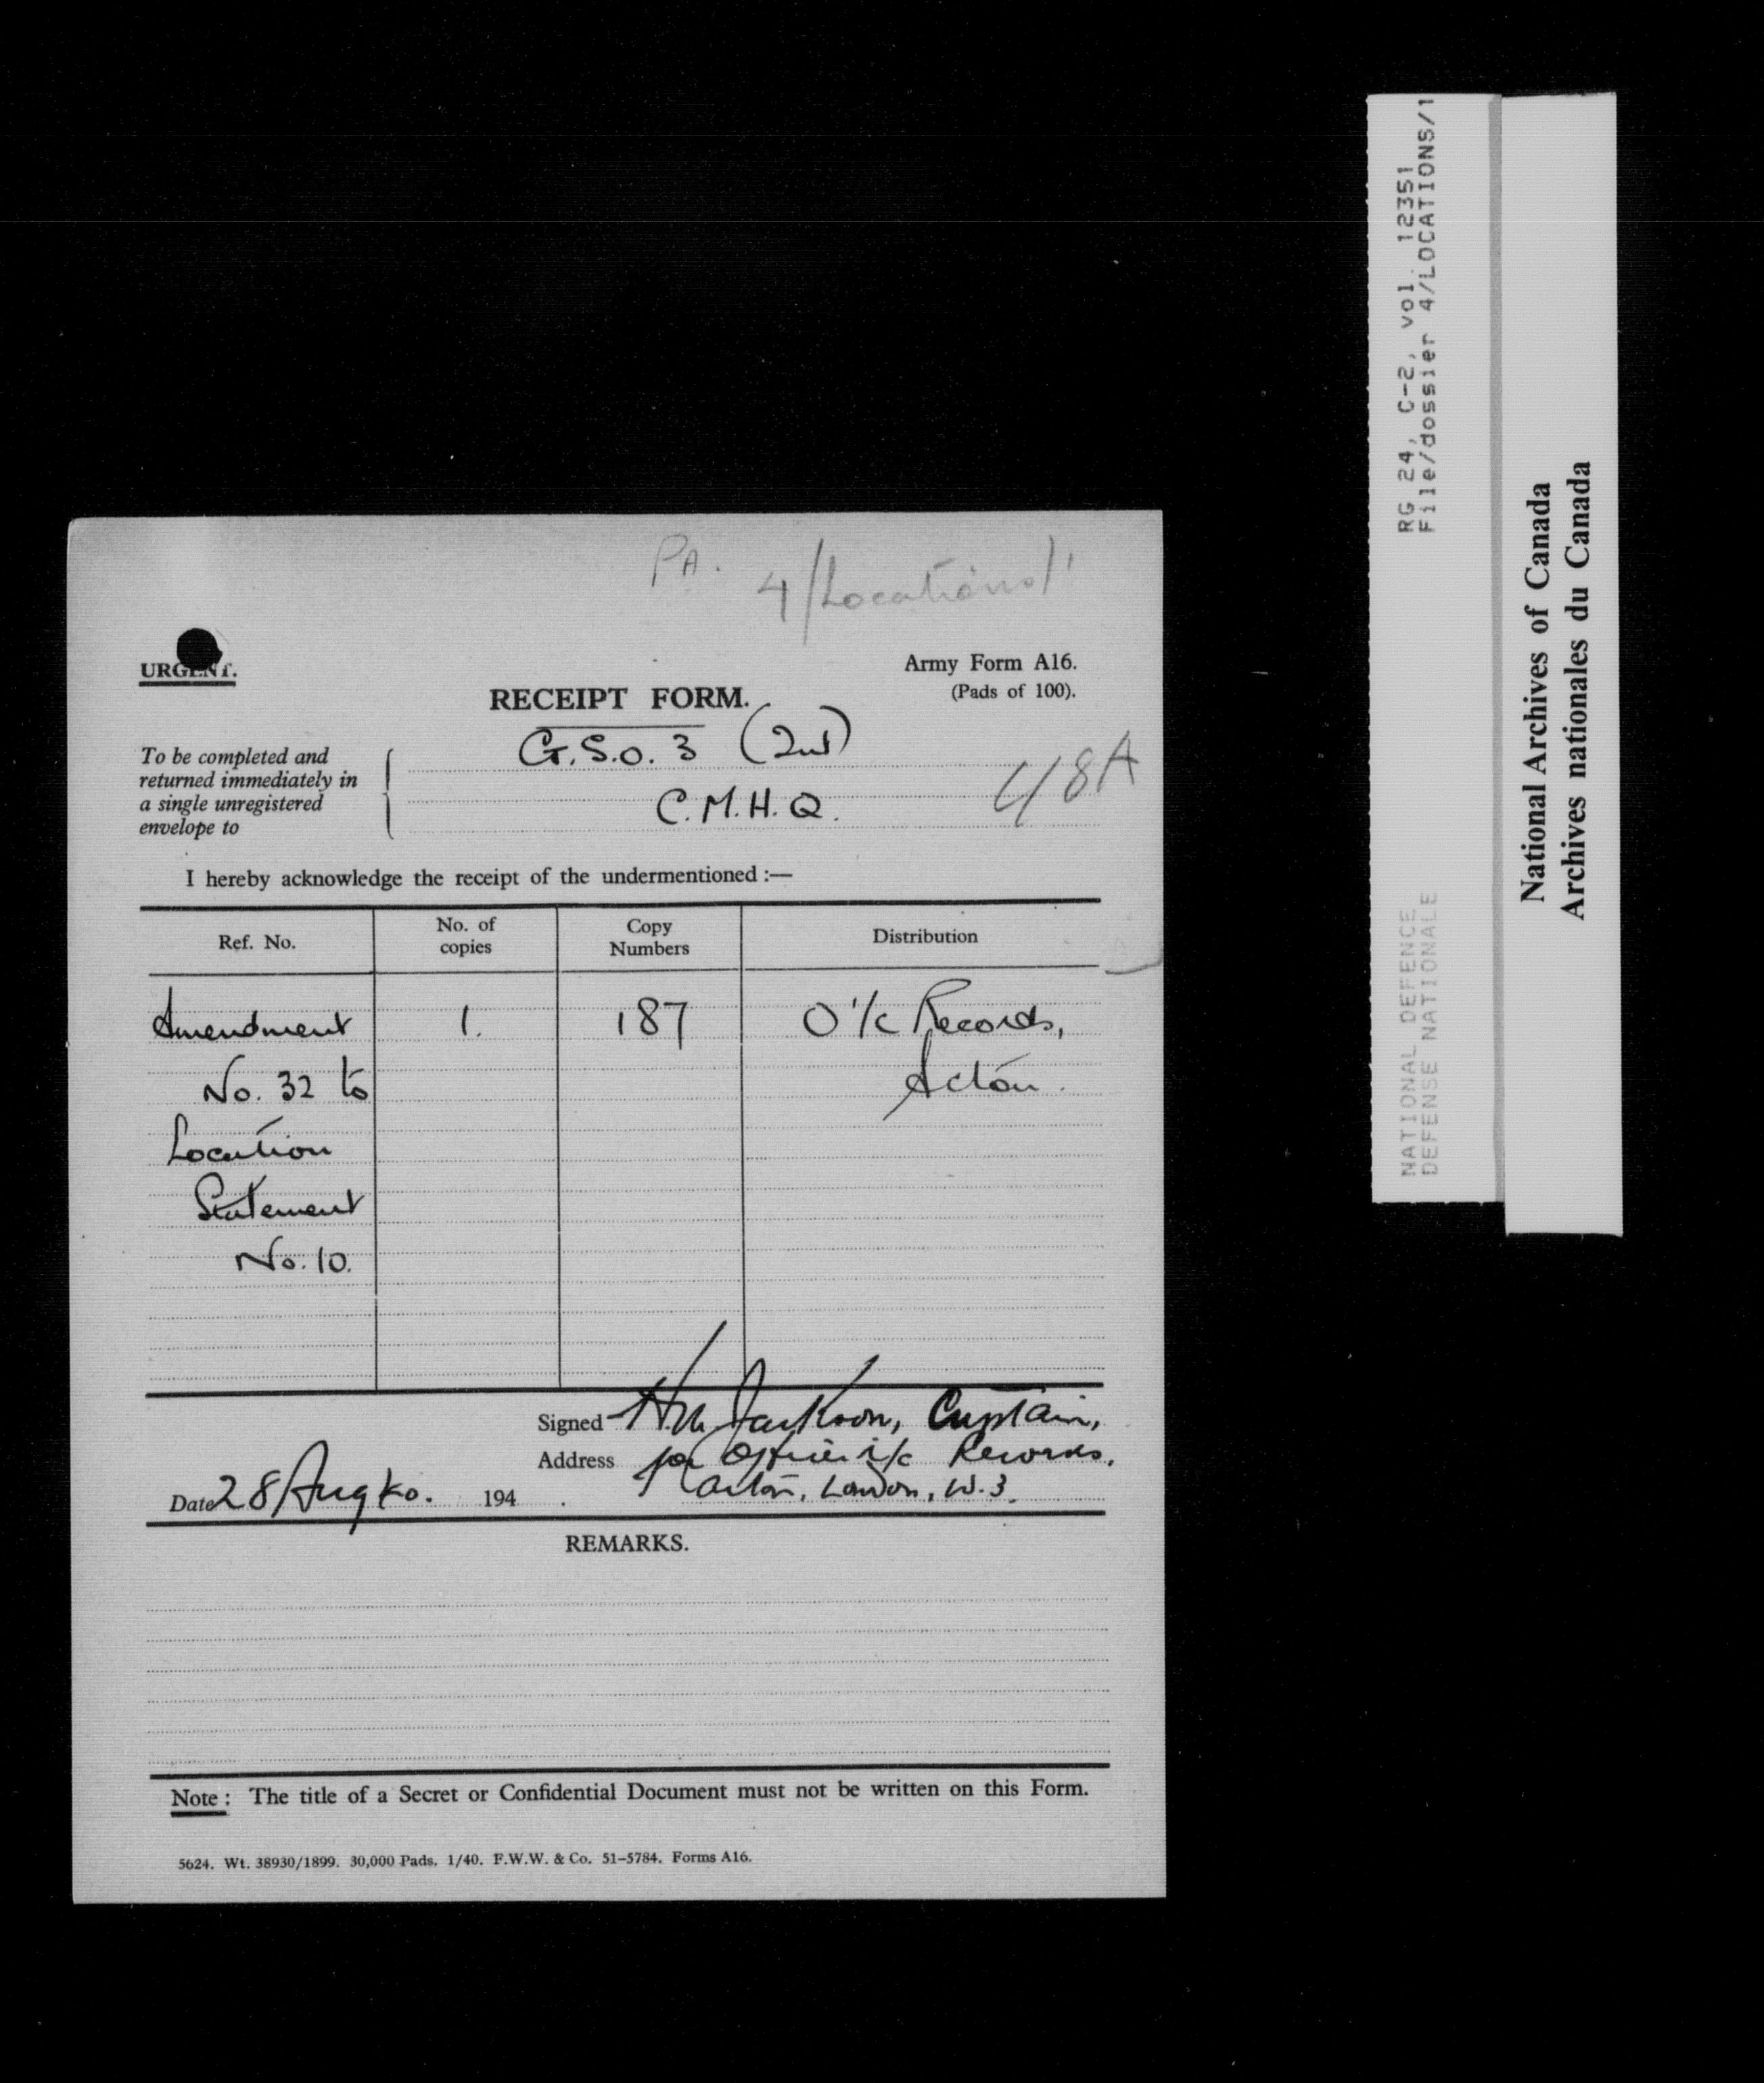 PA.
4/Locations/1
URGENT.
Army Form A16.
(Pads of 100).
RECEIPT FORM.
To be completed and
returned immediately in
a single unregistered
envelope to
G.S.O. 3 (Int)
C.M.H.Q.
48A
I hereby acknowledge the receipt of the undermentioned :—
Ref. No.
No. of
copies
Copy
Numbers
Distribution
Amendment 1. 187 O i/c Records,
No. 32 to Acton.
Location
Statement
No. 10.
Signed Jackson, Captain,
Address for Officer i/c Records,
Acton, London, W.3.
Date 28 Aug 40. 194 .
REMARKS.
Note : The title of a Secret or Confidential Document must not be written on this Form.
5624. Wt. 38930/1899. 30,000 Pads. 1/40. F.W.W. & Co. 51-5784. Forms A16.
RG 24, C-2, vol. 12351
File/dossier 4/LOCATIONS/1
NATIONAL DEFENCE
DEFENSE NATIONALE
National Archives of Canada
Archives nationales du Canada